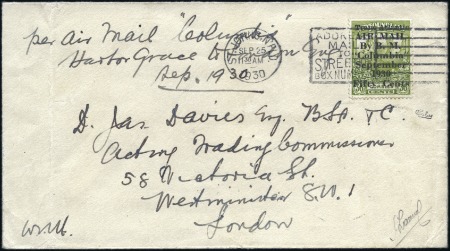 per Air Mail "Columbia"
Harbor Grace to London Eng
Sep. 1930
SEP 25
1930
ADDRESS
MA
TO
STREET
BOX NUM
Trans-Atlantic
AIR MAIL
By B. M.
Columbia
September
1930
Fifty Cents
CENTS
D. Jas Davies Esq. B.Sc. T.C.
Acting Trading Commissioner
58 Victoria St.
Westminister S.W. 1
London